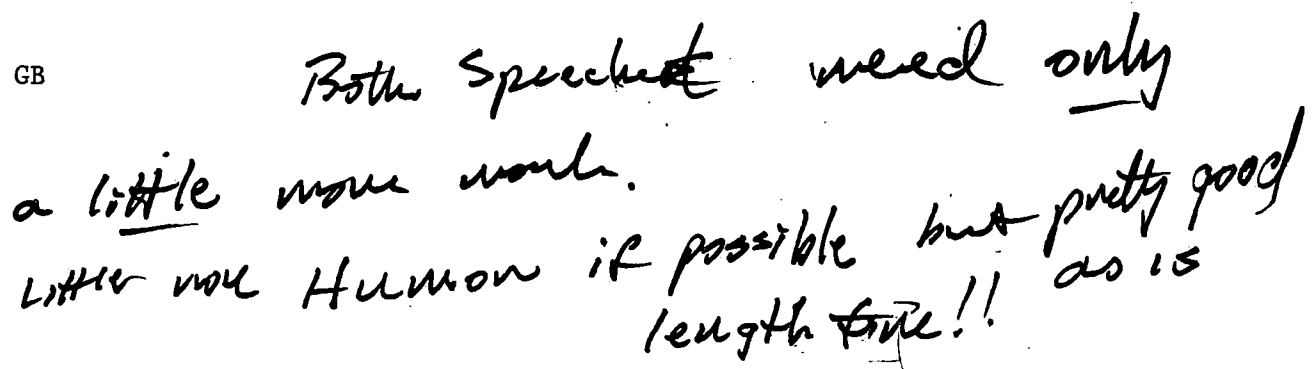 GB
Both Speeches need only
a little more work.
Little more Humor if possible but pretty good
as is
length fine!!